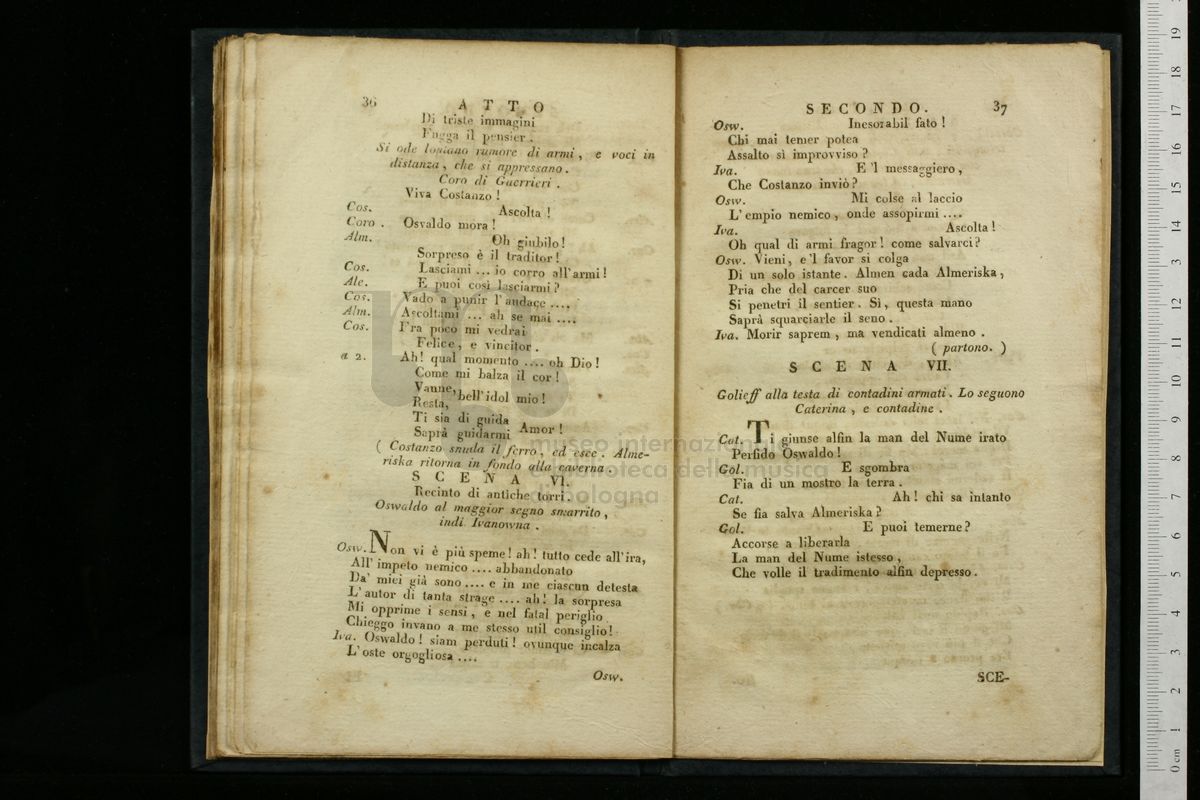 36 ATTO
Di triste immagini
Fugga il pensier.
Si ode lontano rumore di armi, e voci in
distanza, che si appressano.
Coro di Guerrieri.
Viva Costanzo!
Cos. Ascolta!
Coro. Osvaldo mora!
Alm. Oh giubilo!
Sorpreso è il traditor!
Cos. Lasciami ... io corro all'armi!
Ale. E puoi così lasciarmi?
Cos. Vado a punir l'audace ....
Alm. Ascoltami ... ah se mai ....
Cos. Fra poco mi vedrai
Felice, e vincitor.
a 2. Ah! qual momento .... oh Dio!
Come mi balza il cor!
Vanne, Resta, bell'idol mio!
Ti sia di guida
Saprà guidarmi Amor!
( Costanzo snuda il ferro, ed esce. Alme-
riska ritorna in fondo alla caverna.
SCENA VI.
Recinto di antiche torri.
Oswaldo al maggior segno smarrito,
indi Ivanowna.
Osw. Non vi è più speme! ah! tutto cede all'ira,
All'impeto nemico .... abbandonato
Da' miei già sono .... e in me ciascun detesta
L'autor di tanta strage .... ah! la sorpresa
Mi opprime i sensi, e nel fatal periglio
Chieggo invano a me stesso util consiglio!
Iva. Oswaldo! siam perduti! ovunque incalza
L'oste orgogliosa ....
Osw.
SECONDO. 37
Osw. Inesorabil fato!
Chi mai temer potea
Assalto sì improvviso?
Iva. E 'l messaggiero,
Che Costanzo inviò?
Osw. Mi colse al laccio
L'empio nemico, onde assopirmi ....
Iva. Ascolta!
Oh qual di armi fragor! come salvarci?
Osw. Vieni, e 'l favor si colga
Di un solo istante. Almen cada Almeriska,
Pria che del carcer suo
Si penetri il sentier. Sì, questa mano
Saprà squarciarle il seno.
Iva. Morir saprem, ma vendicati almeno.
( partono. )
SCENA VII.
Golieff alla testa di contadini armati. Lo seguono
Caterina, e contadine.
Cat. Ti giunse alfin la man del Nume irato
Perfido Oswaldo!
Gol. E sgombra
Fia di un mostro la terra.
Cat. Ah! chi sa intanto
Se fia salva Almeriska?
Gol. E puoi temerne?
Accorse a liberarla
La man del Nume istesso,
Che volle il tradimento alfin depresso.
SCE-
museo internazionale
biblioteca della musica
di bologna
0 cm 1 2 3 4 5 6 7 8 9 10 11 12 13 14 15 16 17 18 19